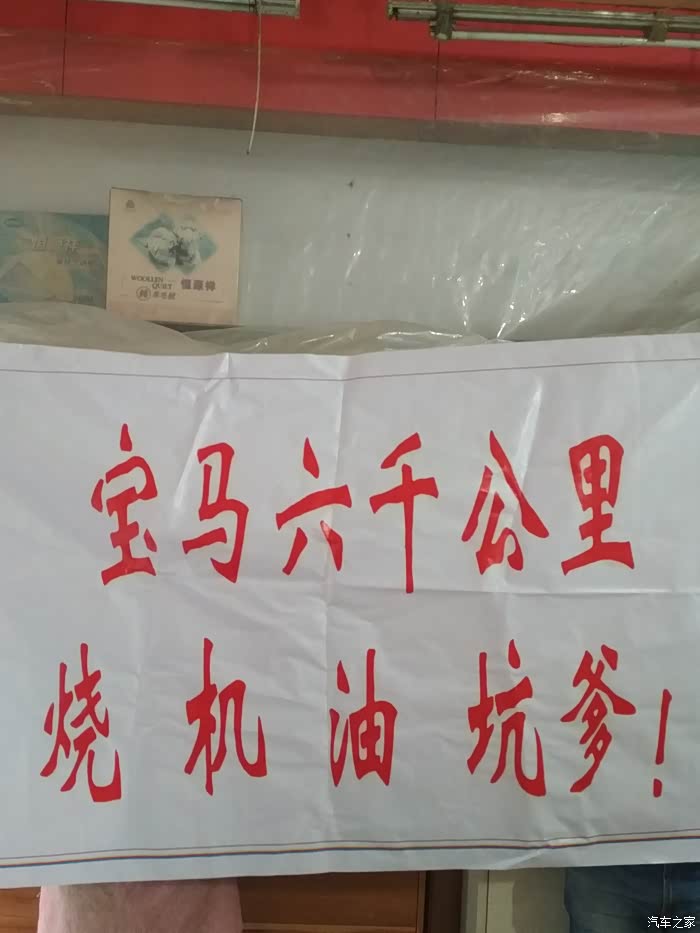 WOOLLEN
QUILT
恒源祥
宝马六千公里
烧机油坑爹！
汽车之家